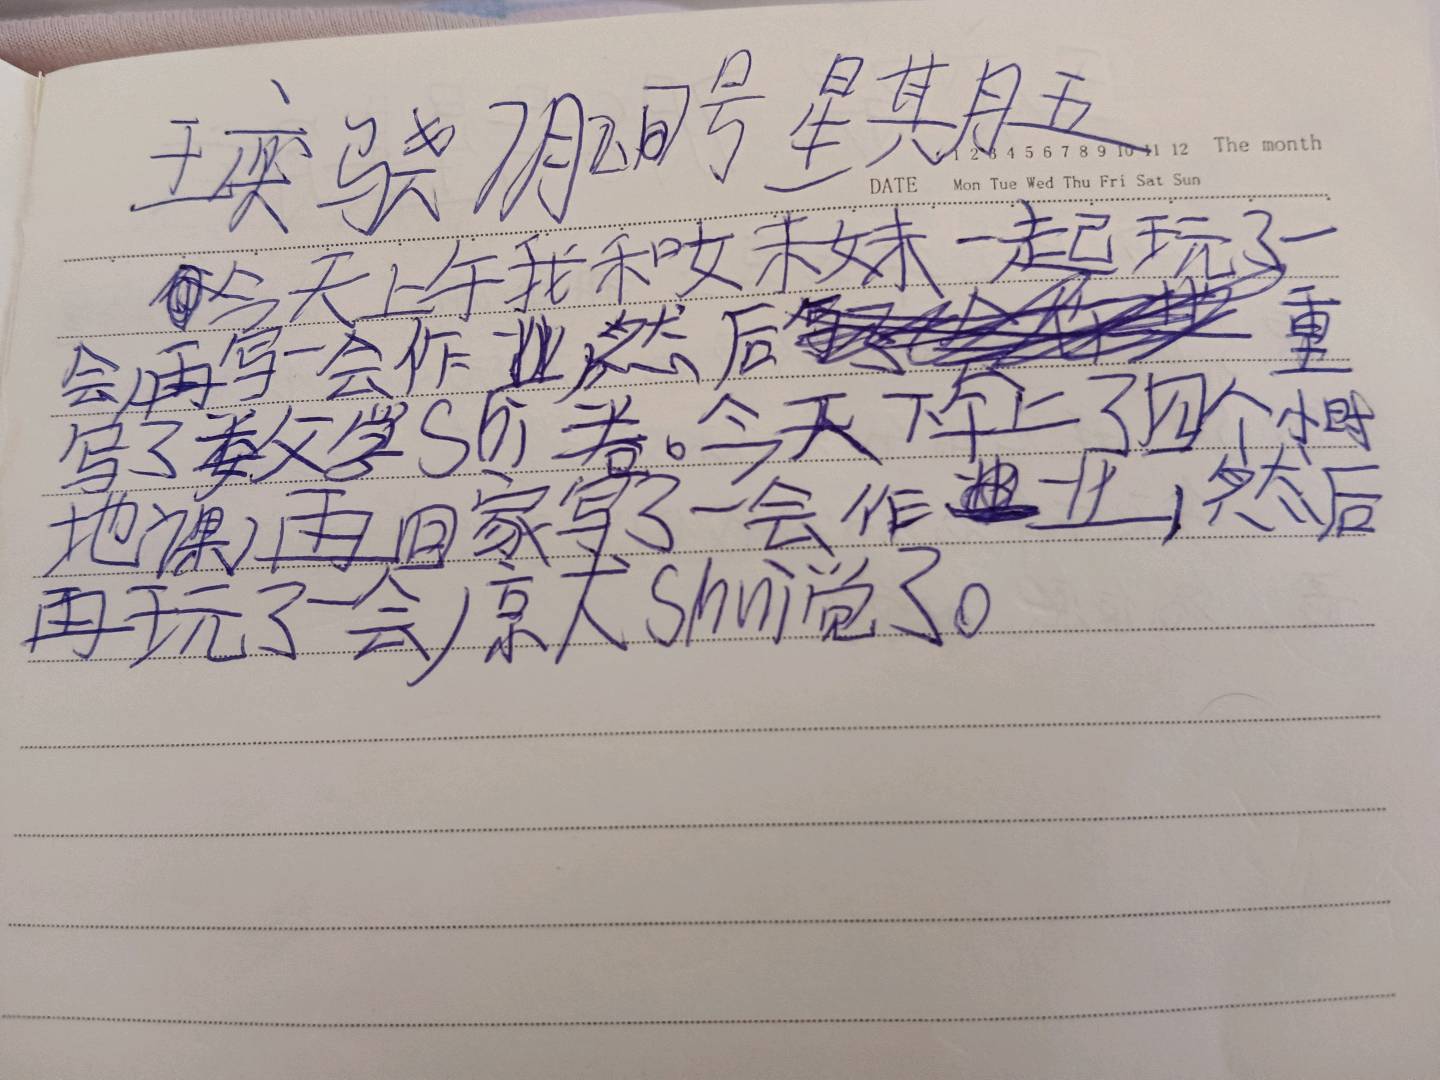 王奕骁 7月28号 星其月五
1 2 3 4 5 6 7 8 9 10 11 12 The month
DATE Mon Tue Wed Thu Fri Sat Sun
今天上午我和妹妹一起玩了一
会,再写一会作业,然后重
写了数学Shi卷。今天下午上了四个小时
地课,再回家写了一会作业,然后
再玩了一会,京尤shui觉了。